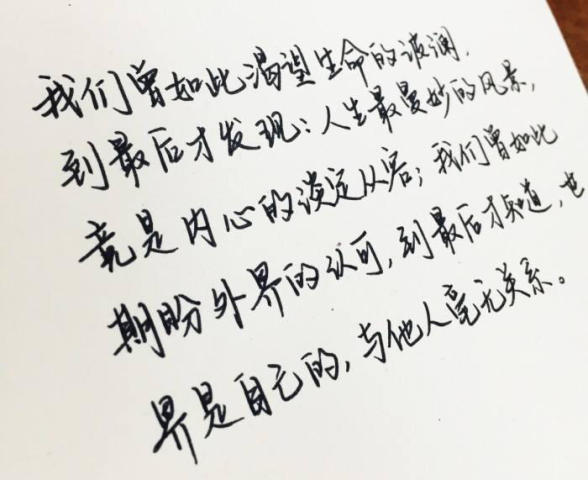 我们曾如此渴望生命的波澜,
到最后才发现:人生最曼妙的风景,
竟是内心的淡定从容;我们曾如此
期盼外界的认可,到最后才知道,世
界是自己的,与他人毫无关系。